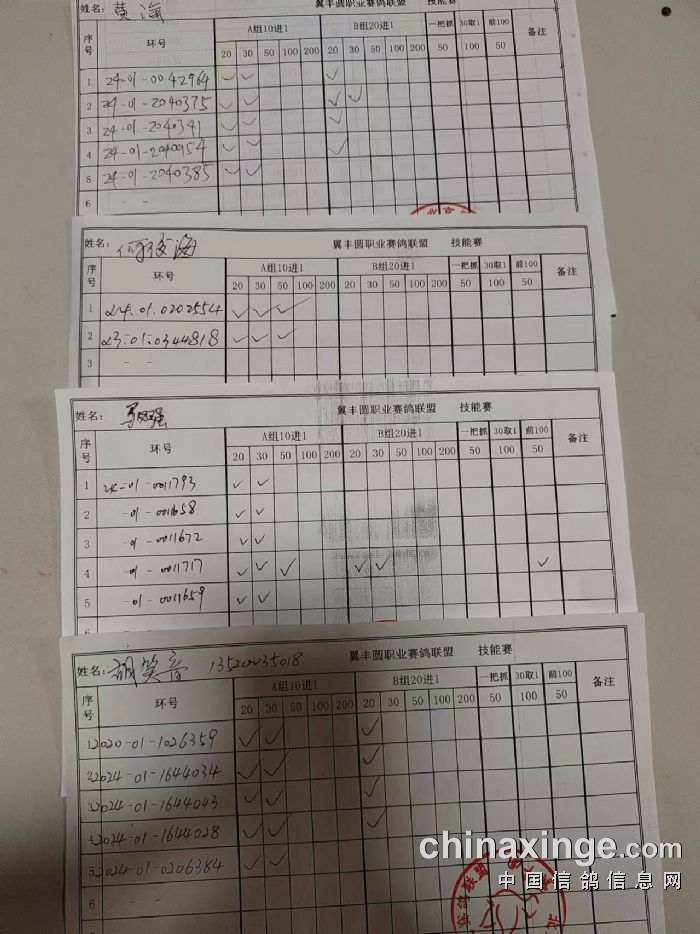 姓名：黄海 翼丰圆职业赛鸽联盟 技能赛
序号 环号 A组10进1 B组20进1 一把抓 30取1 前100 备注
20 30 50 100 200 20 30 50 100 200 50 100 50
1 24-01-0042964 ✓ ✓ ✓
2 24-01-2040375 ✓ ✓ ✓ ✓
3 24-01-2040341 ✓ ✓ ✓
4 24-01-2040954 ✓ ✓ ✓
5 24-01-2040385 ✓ ✓
6 - -
北京
姓名： 翼丰圆职业赛鸽联盟 技能赛
序号 环号 A组10进1 B组20进1 一把抓 30取1 前100 备注
20 30 50 100 200 20 30 50 100 200 50 100 50
1 24.01.0202554 ✓ ✓ ✓
2 23.01.0344818 ✓ ✓ ✓
3 - -
姓名： 翼丰圆职业赛鸽联盟 技能赛
序号 环号 A组10进1 B组20进1 一把抓 30取1 前100 备注
20 30 50 100 200 20 30 50 100 200 50 100 50
1 24-01-0011793 ✓ ✓
2 -01-0011658 ✓ ✓
3 -01-0011672 ✓ ✓
4 -01-0011717 ✓ ✓ ✓ ✓ ✓ ✓
5 -01-0011659 ✓ ✓
6
姓名：胡笑音 13520035018 翼丰圆职业赛鸽联盟 技能赛
序号 环号 A组10进1 B组20进1 一把抓 30取1 前100 备注
20 30 50 100 200 20 30 50 100 200 50 100 50
1 2020-01-1026359 ✓ ✓ ✓
2 2024-01-1644034 ✓ ✓ ✓
3 2024-01-1644043 ✓ ✓ ✓
4 2024-01-1644028 ✓ ✓ ✓
5 2024-01-0206384 ✓ ✓
6 - -
赛鸽联盟
chinaxinge.com
中国信鸽信息网